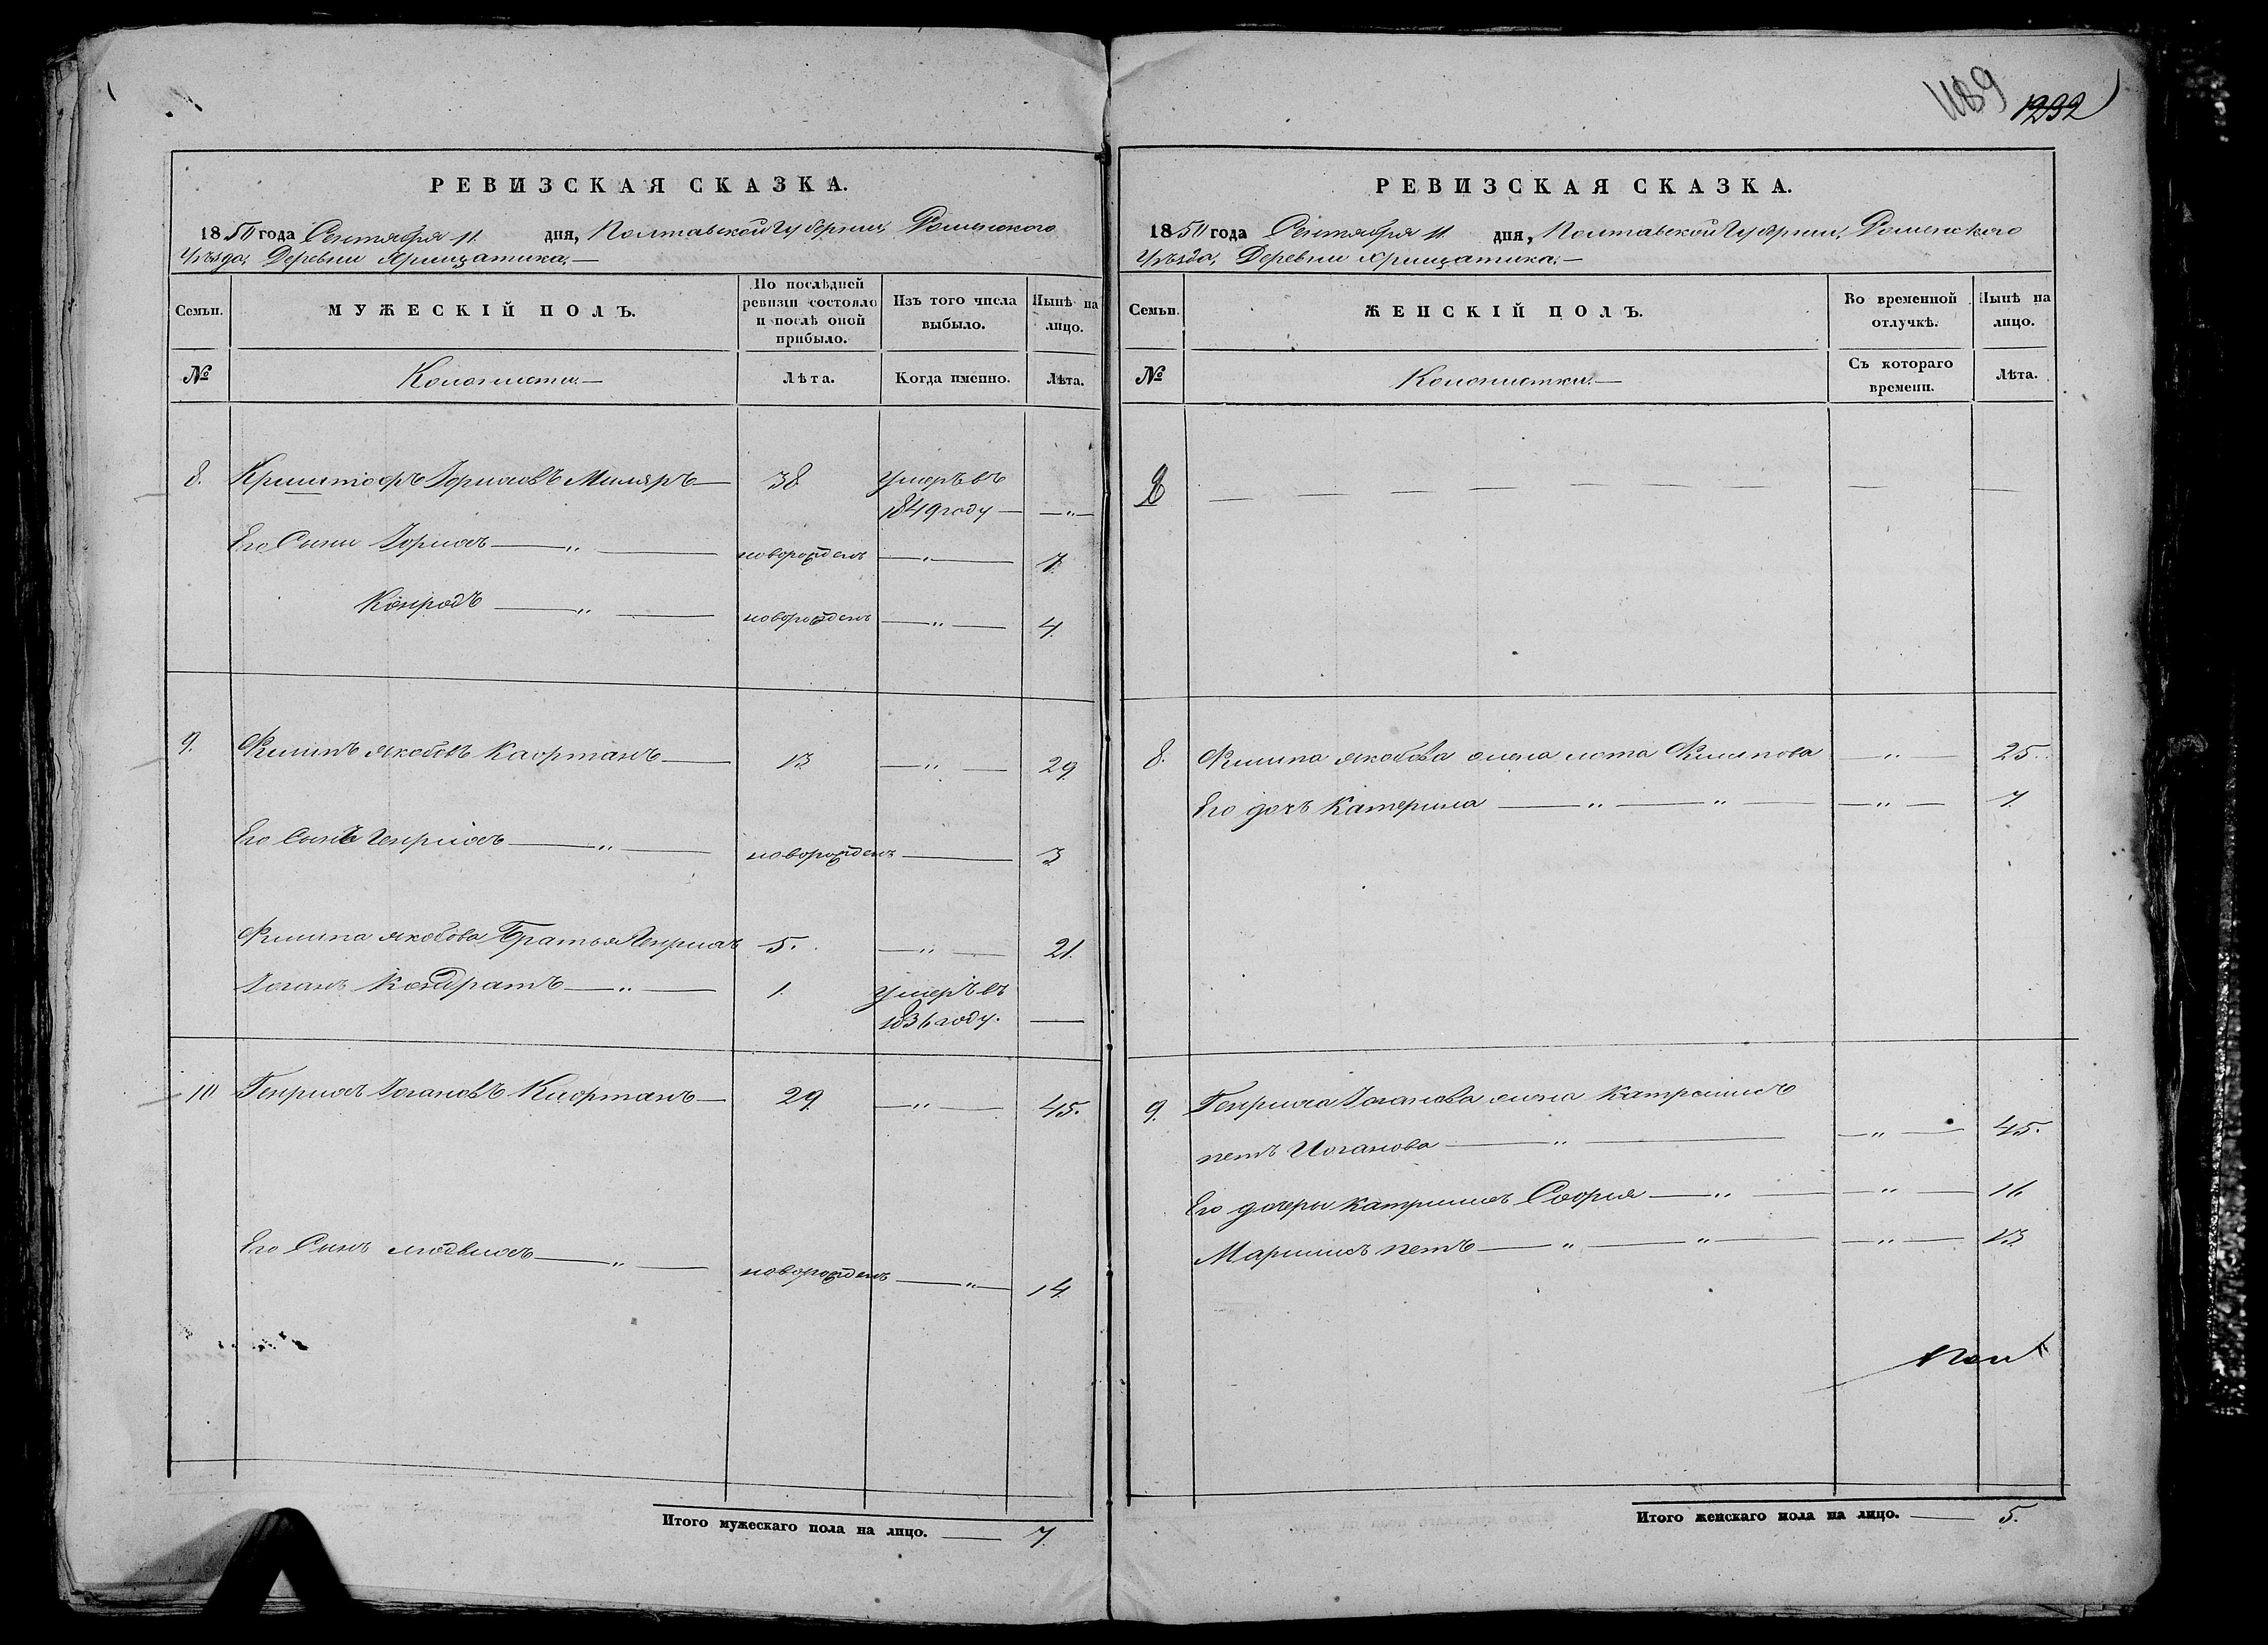 1189 1292
РЕВИЗСКАЯ СКАЗКА.
1850 года Сентября 11 дня, Полтавской Губернии, Роменского
Уѣзда, Деревни Хрищатика.—
Семьи. МУЖЕСКІЙ ПОЛЪ. По послѣдней ревизіи состояло и послѣ оной прибыло. Изъ того числа выбыло. Нынѣ на лицо.
№ Колонисты.— Лѣта. Когда именно. Лѣта.
8. Криштофъ Миляръ— 38 Умеръ въ
1849 году — —"—
Его Сыны —"— новорожденъ —"— 7.
Конродъ —"— новорожденъ —"— 4.
9. Филипъ Якобовъ Кафртанъ— 13 —"— 29
Его Сынъ Генрихъ —"— новорожденъ — 3
Филипа Якобова Братья Генрихъ 5. —"— 21.
Іоганъ Кондратъ —"— 1. Умеръ въ
1836 году. —
10 Генрихъ Іогановъ Кафртанъ— 29 —"— 45.
Его Сынъ Людвихъ —"— новорожденъ —"— 14.
Итого мужескаго пола на лицо. — 7.
РЕВИЗСКАЯ СКАЗКА.
1850 года Сентября 11 дня, Полтавской Губернии, Роменского
Уѣзда, Деревни Хрищатика.—
Семьи. ЖЕНСКІЙ ПОЛЪ. Во временной отлучкѣ. Нынѣ на лицо.
№ Колонистки.— Съ котораго времени. Лѣта.
— — — — — — — — —
8. Филипа Якобова жена Лота Филипова —"— 25.
Его дочь Катерина —"—"— —"— 7.
9. Генриха Іоганова жена Катрлисъ
петъ Иоганова —"— —"— 45.
Его дочеры Катрлисъ Софья —"— —"— 16
Марлисъ петъ —"—"— —"— 13
Итого женскаго пола на лицо. — 5.